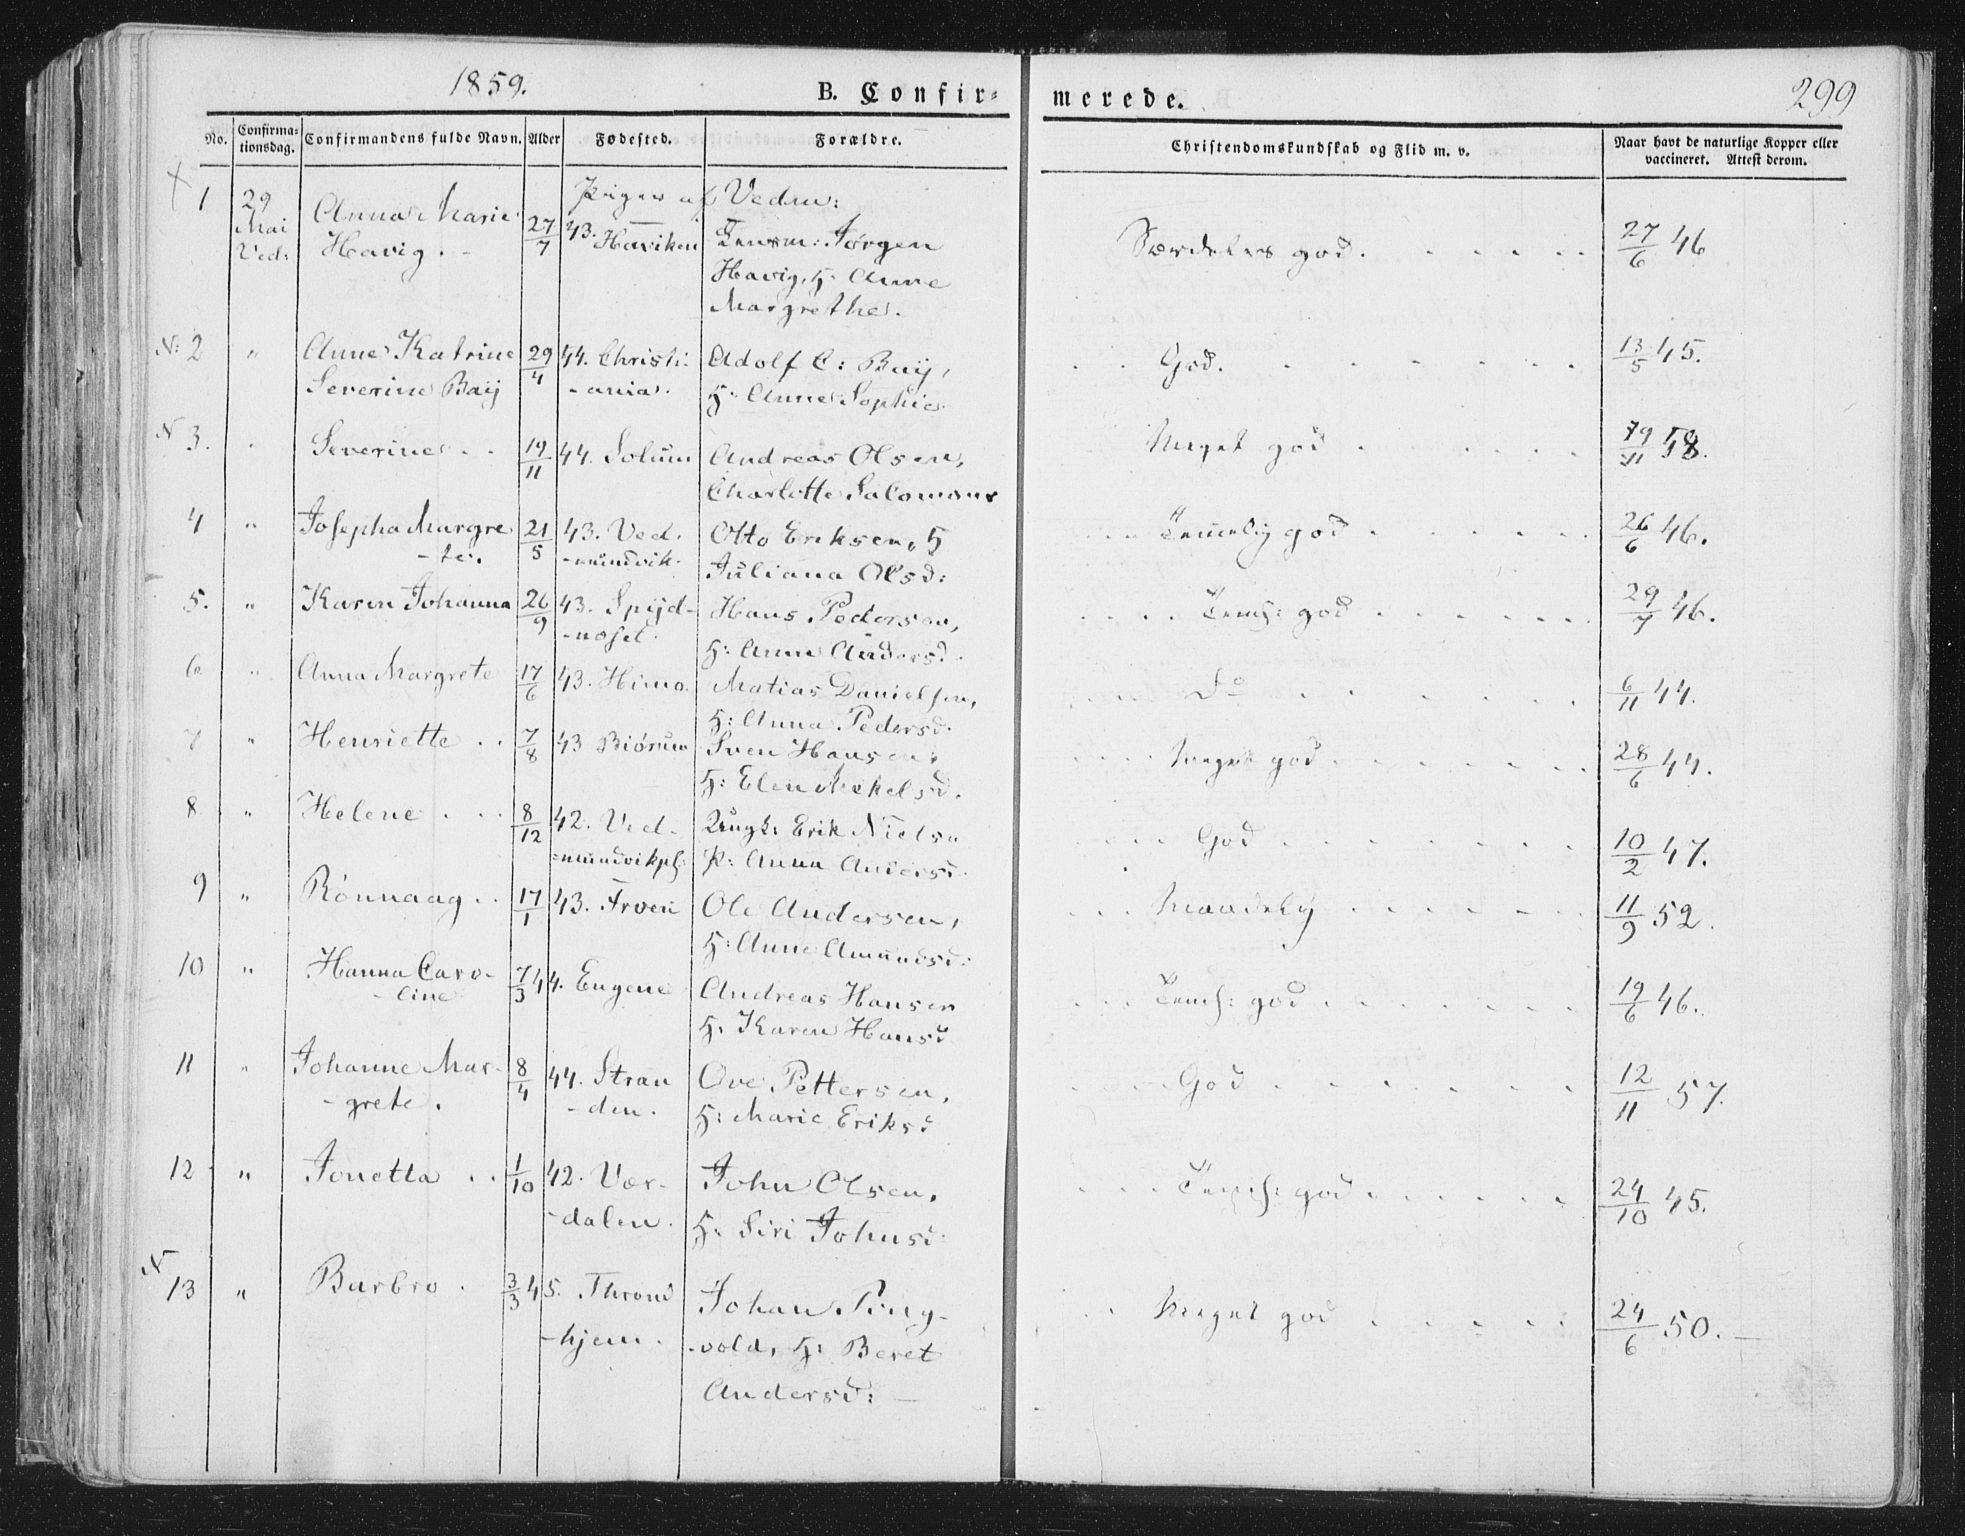 1859.
B. Confir=
merede.
299
No.
Confirma=
tionsdag.
Confirmandens fulde Navn.
Alder
Fødested.
Forældre.
Christendomskundskab og Flid m. v.
Naar havt de naturlige Kopper eller
vaccineret. Attest derom.
Piger af Vedm:
1 29 Anna Marie 27/7 43. Haviken Lensm: Jørgen Særdeles god. 27/6 46
Mai Havig.
Ved: Havig, H. Anne
Margrethe.
N: 2 " Anne Katrine 29/4 44. Christi- Adolf C: Baij, God. 13/5 45.
Severine Baij -ania. H: Anne Sophie
N 3. " Severine 19/11 44. Solum Andreas Olsen, Meget god 58.
Charlotte Salomons
4 " Josepha Margre 21/5 43. Ved- Otto Eriksen, H Temmelig god 26/6 46.
-te. -mundvik. Juliana Olsd:
5. " Karen Johanna 26/9 43. Spijd- Hans Pedersen, Teml: god 29/7 46.
-noset. H: Anne Andersd.
6 " Anna Margrete 17/6 43. Himo. Matias Danielsen, Do 6/11 44.
H: Anna Pedersd.
7 " Henriette 7/8 43 Biørum Sven Hansen, Meget god 28/6 44.
H: Elen Mekelsd.
8 " Helene 8/12 42. Ved- Ungk: Erik Nielsn God 10/2 47.
=mundvikpl: P: Anna Andersd.
9 " Rønnaag 17/1 43. Troen Ole Andersen, Maadelig 11/9 52.
H: Anne Amundsd:
10 " Hanna Caro- 7/3 44. Eugene Andreas Hansen Teml: god 19/6 46.
-line H. Karen Hansd
11 " Johanne Mar- 8/4 44. Stran Ove Pettersen, God 12/11 57.
-grete. -den. H: Marie Eriksd
12 " Jonetta 1/10 42. Vær- John Olsen, Teml: god 24/10 45.
-dalen. H: Siri Johnsd
N 13 " Barbro 3/3 45. Thrond Johan Ting- Meget god 24/6 50.
-hjem. -vold, H: Beret
Andersd: